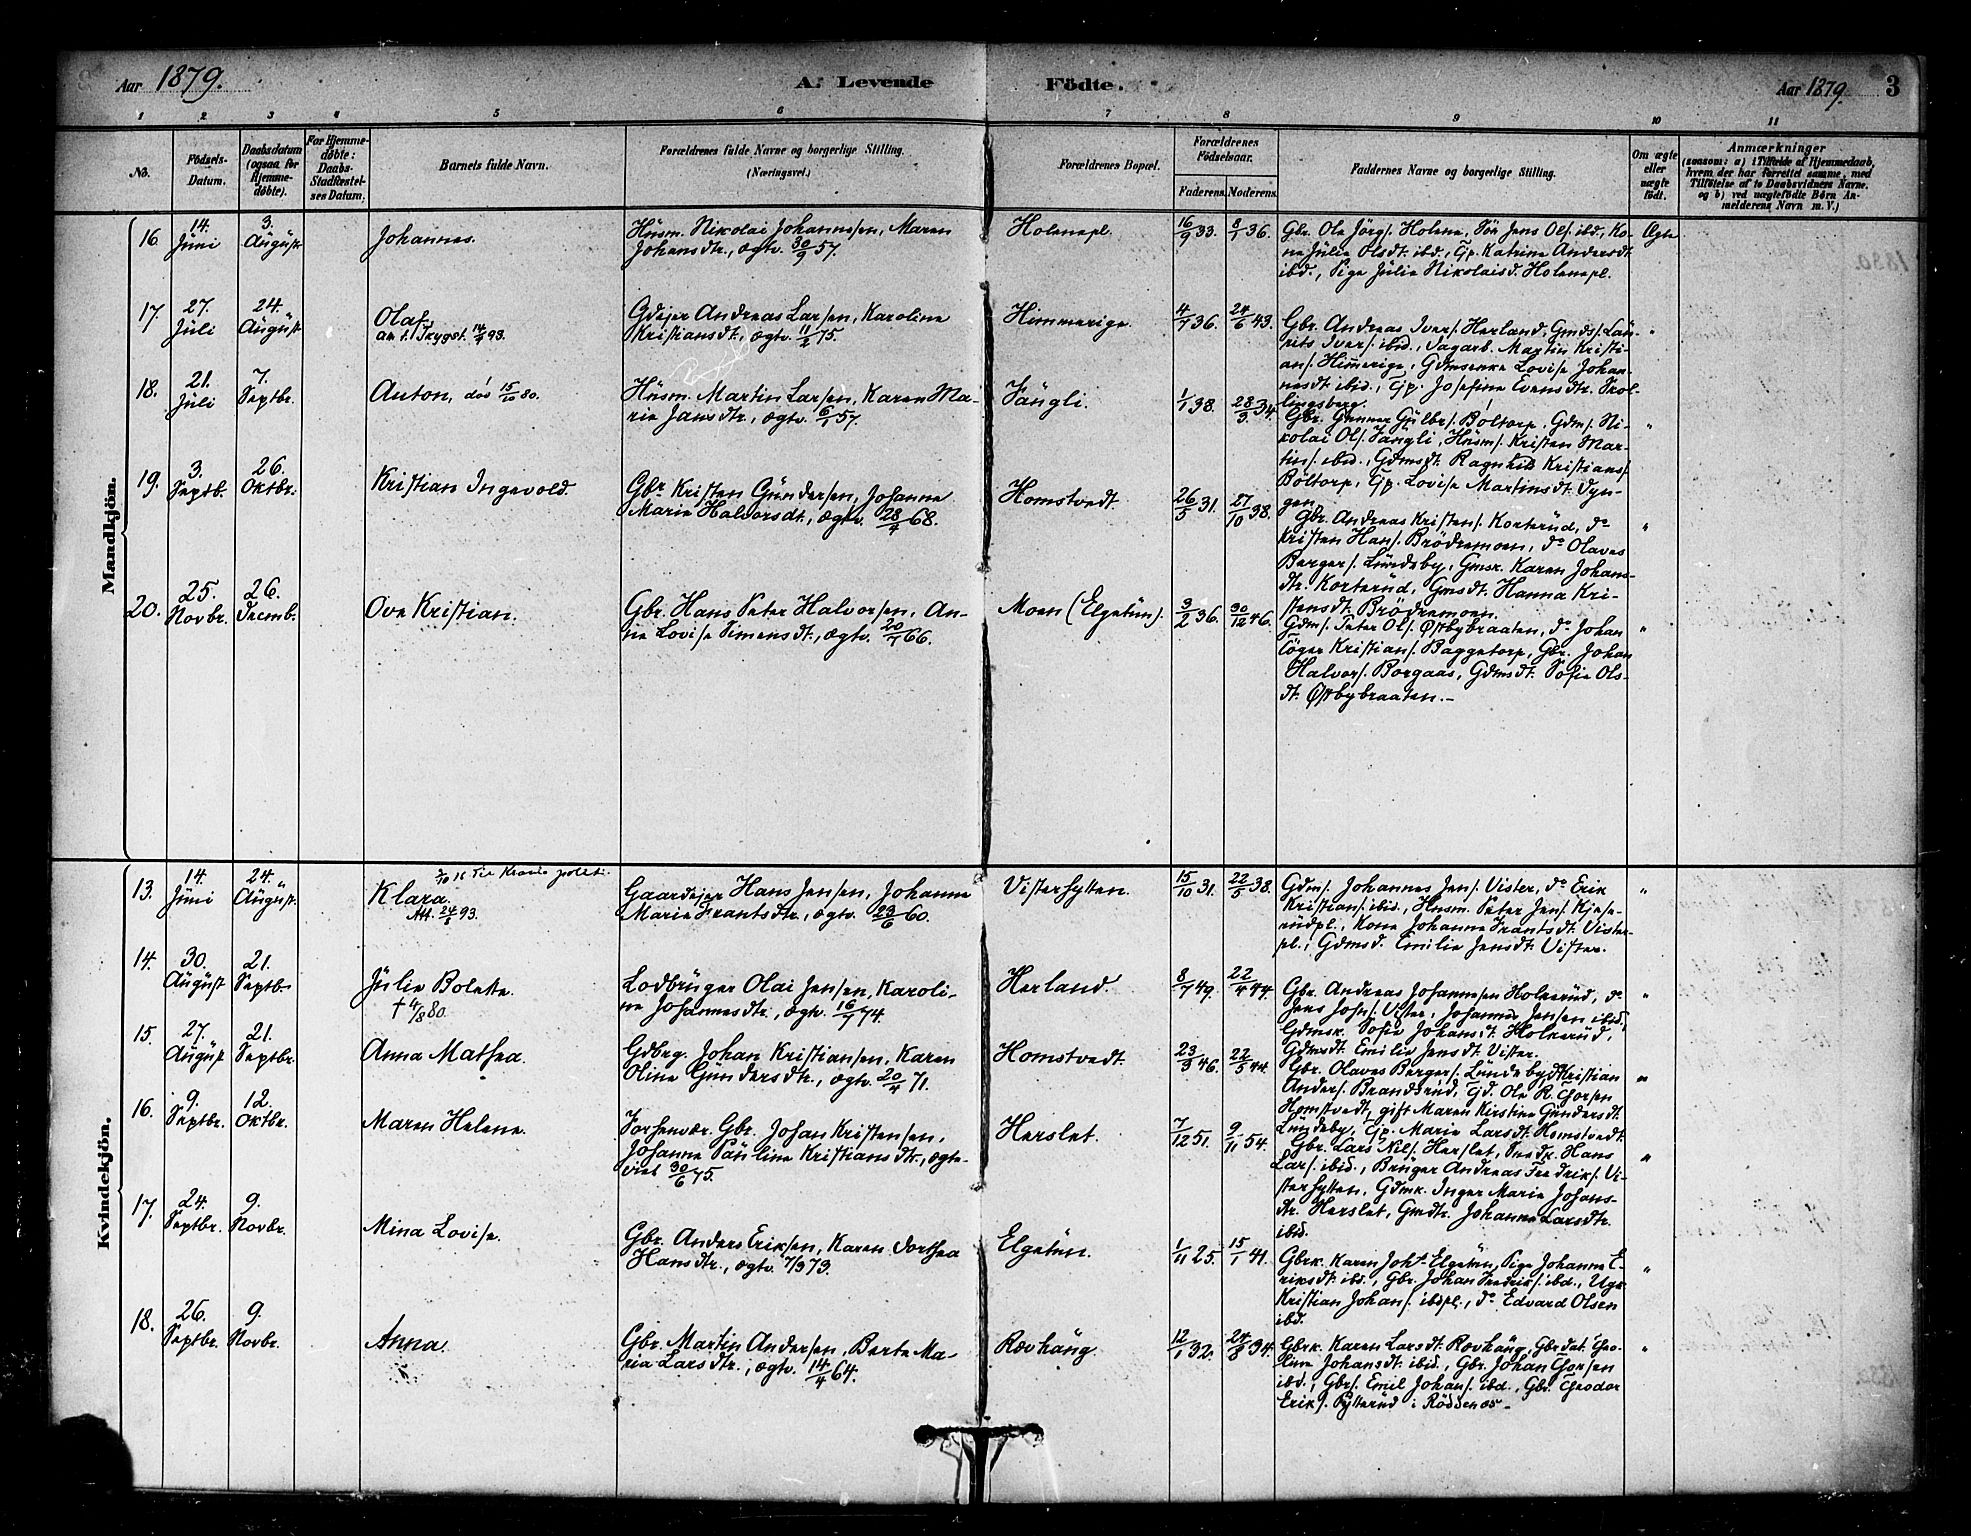 Aar 1879.
A. Levende Födte.
Aar 1879. 3
1 2 3 4 5 6 7 8 9 10 11
No.
Födsels-Datum.
Daabsdatum (ogsaa for Hjemmedøbte).
For Hjemmedøbte: Daabs-Stadfæstelses Datum.
Barnets fulde Navn.
Forældrenes fulde Navne og borgerlige Stilling. (Næringsvei.)
Forældrenes Bopæl.
Forældrenes Födselsaar.
Faderens. Moderens.
Faddernes Navne og borgerlige Stilling.
Om ægte eller uægte født.
Anmærkninger
(saasom: a) i Tilfælde af Hjemmedaab,
hvem der har forrettet samme, med
Tilføielse af to Daabsvidners Navne.
og b) ved uægtefødte Børn An-
melderens Navn m. V.)
Mandkjön.
16. 14. Juni 3. August Johannes.
Husm. Nikolai Johannesen, Maren
Johansdtr., ægtv. 30/9 57.
Holenepl. 16/9 33. 8/1 36.
Gbr. Ole Jörgs. Holene, Tør Jens Ols. ibid, Ko-
ne Julie Olsdt. ibd., Gp. Katrine Andersdt.
ibd., Pige Julie Nikolaisd. Holenepl.
Ægte
17. 27. Juli 24. August Olaf,
att. t. Trygst. 14/4 93.
Gdejer Andreas Larsen, Karoline
Kristiansdt., ægtv. 11/2 75.
Himmerige. 4/7 36. 24/6 43.
Gbr. Andreas Ivers. Herland, Gmds. Lau-
rits Ivers. ibid., Dagarb. Martin Kristi-
ans. Himerige, Gdmsenke Lovise Johan-
nesdt. ibid., Gp. Josefine Evensdtr. Skol-
lingsberg.
"
18. 21. Juli 7. Septbr. Anton, död 15/10 80.
Husm. Martin Larsen, Karen Ma-
rie Jansdtr., ægtv. 6/1 57.
Vangli. 1/1 38. 28/3 34.
Gbr. Gunner Gulbr. Böltorp, Gdm. Ni-
kolai Ols. Vangli, Husm. Kristen Mar-
tins. ibid., Gdmsdt. Ragnhild Kristians.
Böltorp, Gp. Lovise Martinsdt. Dyn-
gen
"
19. 3. Septb. 26. Oktbr. Kristian Ingevold.
Gbr. Kristen Gundersen, Johanne
Marie Halvorsdt., ægtv. 28/9 68.
Homstvedt. 26/5 31. 27/10 38.
Gbr. Andreas Kristens. Korterud, do
Kristen Hans. Brödremoen, do Olaves
Bergers. Lundeby, Gmsk. Karen Johans-
dtr. Korterud, Gmsdt. Hanna Kri-
stensdt. Brödremoen.
"
20. 25. Novbr. 26. Decemb. Ove Kristian.
Gbr. Hans Peter Halvorsen, An-
ne Lovise Simensdt., ægtv. 20/7 66.
Moen (Elgetun). 3/2 36. 30/12 46.
Gdms. Peter Ols. Østbybraaten, do Johan
Kristians. Baggetorp, Gbr. Johan
Halvors. Borgaas, Gdmsdt. Sofie Ols-
dt. Østbybraaten.-
"
Kvindekjön.
13. 14. Juni 24. August Klara.
Att. 24/8 93.
Gaardejer Hans Jensen, Johanne
Marie Frantsdtr., ægtv. 23/6 60.
Visterflytten. 15/10 31. 22/5 38.
Gdms. Johannes Jens. Vister, do Erik
Kristians. ibid., Husm. Peter Jens. Kjese-
rudpl., Kone Johanne Frantsdt. Vister-
pl., Gdmsd. Emilie Jensdt. Vister.
"
14. 30. August 21. Septbr. Julie Bolette.
† 4/8 80.
Lodbruger Olai Jensen, Karoli-
ne Johannesdtr., ægtv. 16/7 74.
Herland. 8/7 49. 22/4 44.
Gbr. Andreas Johannesen Holterud, do
Jens Johs. Vister, Johannes Jensen ibid.,
Gdmsk. Sofie Johansdt. Holterud,
Gdmsdt. Emilie Jensdt. Vister.
"
15. 27. August 21. Septbr. Anna Mathea.
Gdbrg. Johan Kristiansen, Karen
Oline Gundersdtr., ægtv. 20/4 71.
Homstvedt. 23/9 46. 22/5 44.
Gbr. Olaves Bergers. Lundeby, do Kristian
Anders. Brandsrud, Gd. Ole R. Thorsen
Homstvedt, gift Maren Kirstine Gundersdt.
Lundeby, Gp. Marie Larsdt. Homstvedt.
"
16. 9. Septbr. 12. Oktbr. Maren Helene.
Forhenvær. Gbr. Johan Kristensen,
Johanne Pauline Kristiansdtr., ægte-
viet 30/6 75.
Herslet. 7/12 51. 9/11 54.
Gbr. Lars Nils. Herslet, Hans
Lars. ibid., Bruger Andreas Fredriks. Vi-
sterflytten, Gdmk. Inger Marie Johans-
dtr. Herslet, Gmdtr. Johanne Larsdtr.
ibid.
"
17. 24. Septbr. 9. Novbr. Mina Lovise.
Gbr. Anders Eriksen, Karen Dorthea
Hansdtr., ægtv. 7/3 73.
Elgetun. 1/11 25. 15/1 41.
Gbrk. Karen Johs. Elgetun, Pige Johanne E-
riksdt. ibd., Gbr. Johan Fredriks. ibd., Ugk.
Kristian Johans. ibdpl., do Edvard Olsen
ibd.
"
18. 26. Septbr. 9. Novbr. Anna.
Gbr. Martin Andersen, Berte Ma-
ria Larsdtr., ægtv. 14/4 64.
Rævhaug. 12/1 32. 24/8 34.
Gbrk. Karen Larsdt. Rævhaug, Gbrdat. Theo-
line Johansdt. ibid., Gbr. Johan Thorsen
ibd., Gbrs. Emil Johans. ibd., Gbr. Theodor
Eriks. Flytterud i Röddenes.-
"